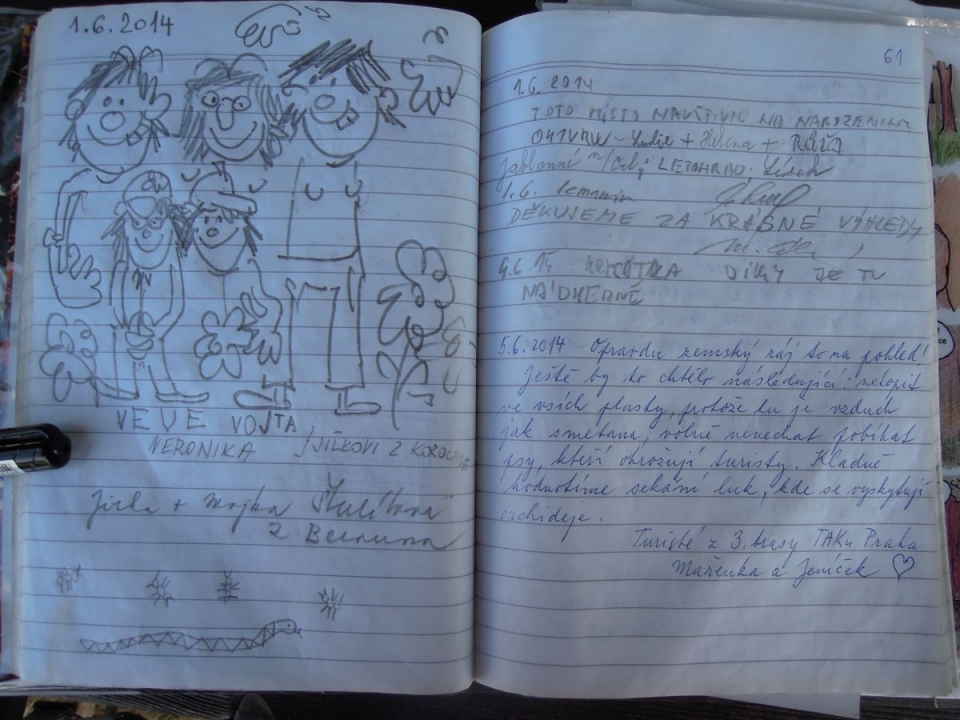 1.6.2014
VEVE VOJTA
VERONIKA JIČKOVI Z
Jirka + Majka
Z Berouna
61
1.6 2014
TOTO MÍSTO NAVŠTÍVILI NA NAROZENINY
+ Helena + Růža
Jablonné n/Orl, LETOHRAD, Lísek
1.6.
DĚKUJEME ZA KRÁSNÉ VÝHLEDY
4.6 14 DÍKY JE TU
NÁDHERNĚ
5.6.2014 Opravdu zemský ráj to na pohled!
Ještě by to chtělo následující: netopit
ve vsích plasty, protože tu je vzduch
jak smetana, volně nenechat pobíhat
psy, kteří ohrožují turisty. Kladně
hodnotíme sekání luk, kde se vyskytují
orchideje.
Turisté z 3. trasy TAKu Praha
Mařenka a Jeníček ♡